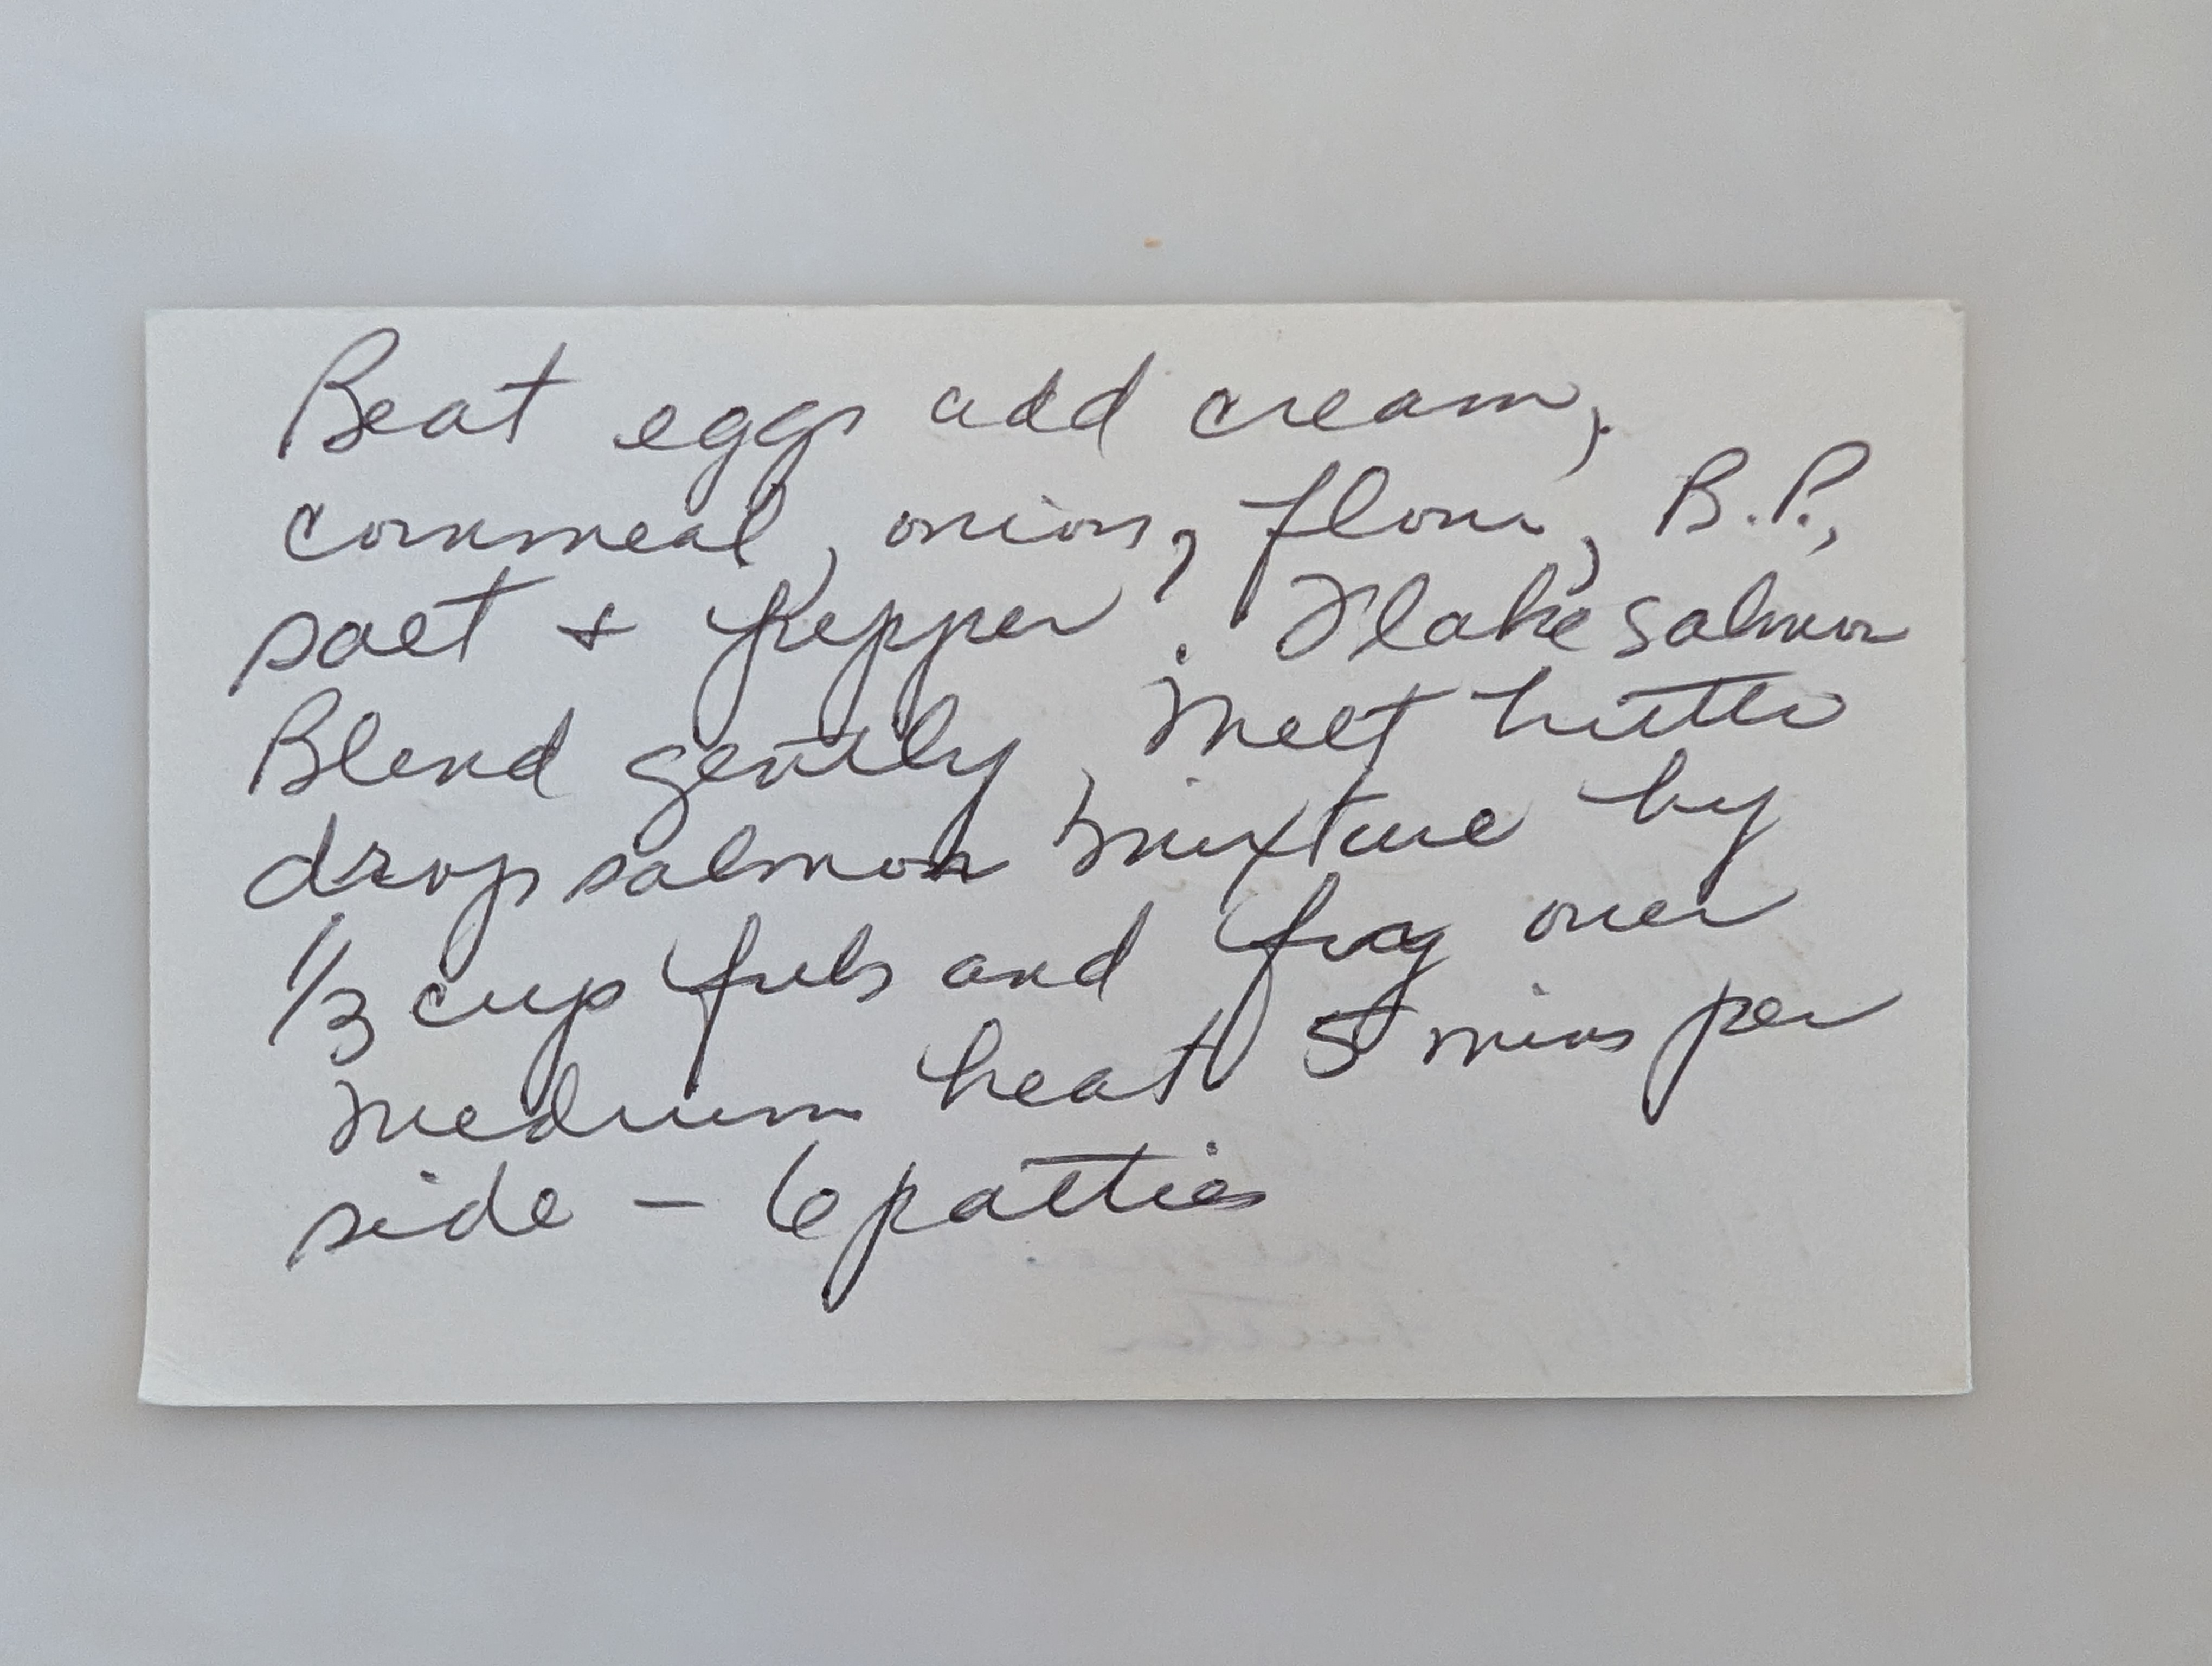 Beat eggs add cream,
cornmeal, onion, flour, B.P.,
salt + pepper. Flake salmon
Blend gently, Melt butter
drop salmon mixture by
1/3 cup fuls and fry over
medium heat 5 mins per
side - 6 patties